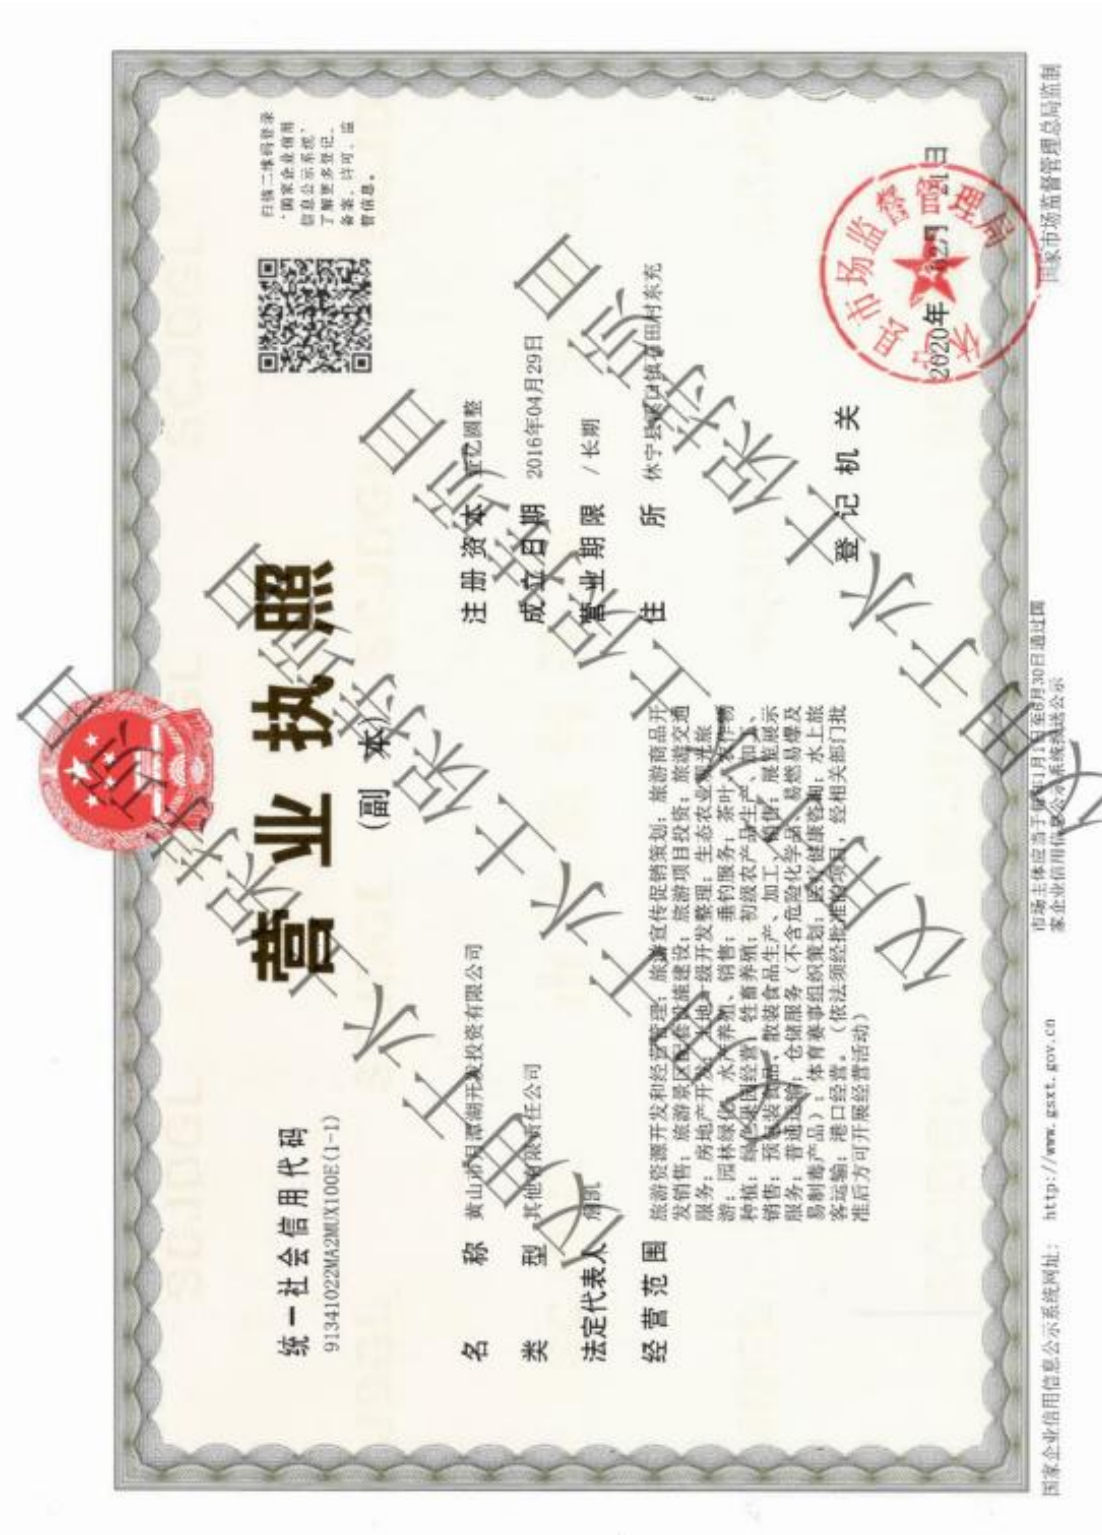 统一社会信用代码
91341022MA2MUX100E(1-1)
营业执照
(副 本)
扫描二维码登录
“国家企业信用
信息公示系统”
了解更多登记、
备案、许可、监
管信息。
名 称 黄山市月潭湖开发投资有限公司
类 型 其他有限责任公司
法定代表人
经营范围 旅游资源开发和经营管理；旅游宣传促销策划；旅游商品开
发销售；旅游景区配套设施建设；旅游项目投资；旅游交通
服务；房地产开发；土地一级开发整理；生态农业观光旅
游；园林绿化；水产养殖、销售；垂钓服务；茶叶、农作物
种植；绿色果园经营；牲畜养殖；初级农产品生产、加工、
销售；预包装食品、散装食品生产、加工、销售；展览展示
服务；普通运输；仓储服务（不含危险化学品、易燃易爆及
易制毒产品）；体育赛事组织策划；医疗健康咨询；水上旅
客运输；港口经营。（依法须经批准的项目，经相关部门批
准后方可开展经营活动）
注册资本 壹亿圆整
成立日期 2016年04月29日
营业期限 / 长期
住 所 休宁县溪口镇石田村东充
登记机关
2020年 02月 21日
休宁县市场监督管理局
国家企业信用信息公示系统网址： http://www.gsxt.gov.cn
市场主体应当于每年1月1日至6月30日通过国
家企业信用信息公示系统报送公示
国家市场监督管理总局监制
仅用于水土保持项目
仅用于水土保持项目
仅用于水土保持项目
仅用于水土保持项目